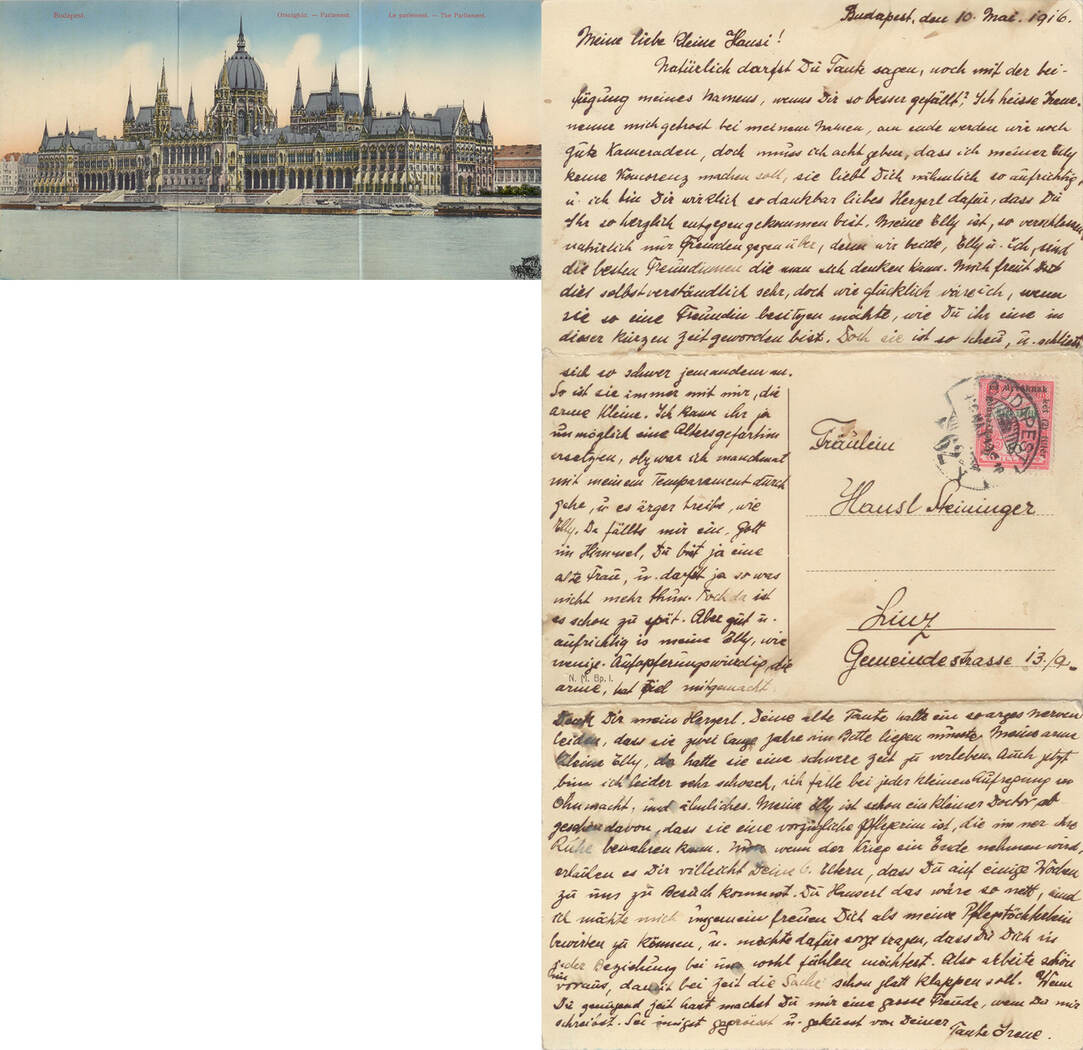 Budapest.
Országház. — Parlament.
Le parlement. — The Parliament.
Budapest, den 10. Mai. 1916.
Meine liebe kleine Hansi!
Natürlich darfst Du Tante sagen, noch mit der bei-
fügung meines Namens, wenns Dir so besser gefällt? Ich heisse Irene,
nenne mich getrost bei meinem Namen, am ende werden wir noch
gute Kameraden, doch muss ich acht geben, dass ich meiner Elly
keine Koncorenz machen soll, sie liebt Dich nähmlich so aufrichtig,
u. ich bin Dir wirklich so dankbar liebes Herzerl dafür, dass Du
Ihr so herzlich entgegengekommen bist. Meine Elly ist, so verschlossen
natürlich nur Fremden gegenüber, denn wir beide, Elly u. ich, sind
die besten Freundinnen die man sich denken kann. Mich freut
dies selbstverständlich sehr, doch wie glücklich wäre ich, wenn
sie so eine Freundin besitzen möhte, wie Du ihr eine in
dieser kurzen Zeit geworden bist. Doch sie ist so scheu, u. schliesst
sich so schwer jemandem an.
So ist sie immer mit mir, die
arme Kleine. Ich kann ihr ja
unmöglich eine Altersgefärtin
ersetzen, obzwar ich manchmal
mit meinem Temparament durch
gehe, u es ärger treibe, wie
Elly. Da fällts mir ein, Gott
im Himmel, Du bist ja eine
alte Frau, u. darfst ja so was
nicht mehr thun. Doch da ist
es schon zu spät. Aber gut u.
aufrichtig is meine Elly, wie
wenige. Aufopferungswürdig, die
arme, hat viel mitgemacht
N. M. Bp. I.
Fräulein
Hansl Steininger
Linz
Gemeindestrasse 13./a.
BUDAPEST
62
Denk Dir mein Herzerl. Deine alte Tante hatte ein so arges nerven
leiden, dass sie zwei lange Jahre im Bette liegen müsste. Meine arme
kleine Elly, da hatte sie eine schwere zeit zu verleben. Auch jetzt
bin ich leider sehr schwach, ich falle bei jeder kleinen Aufregung in
Ohnmacht, und ähnliches. Meine Elly ist schon ein kleiner Doctor, ab
gesehen davon, dass sie eine vorzüglihe Pflegerin ist, die immer ihre
Ruhe bewahren kann. Nun wenn der Krieg ein Ende nehmen wird,
erlauben es Dir villeicht Deine l. Eltern, dass Du auf einige Wochen
zu uns zu Besuch kommst. Du Hanserl das wäre so nett, und
ich möchte mich ungemein freuen Dich als meine Pflegetöchterlein
bewirten zu können, u. möchte dafür sorge tragen, dass Du Dich in
jeder Beziehung bei uns wohl fühlen möchtest. Also arbeite schön
im voraus, damit bei Zeit die Sache schon glatt klappen soll. Wenn
Du genügend zeit hast machst Du mir eine grosse Freude, wenn Du mir
schreibst. Sei innigst gegrüsst u. geküsst von Deiner
Tante Irene.